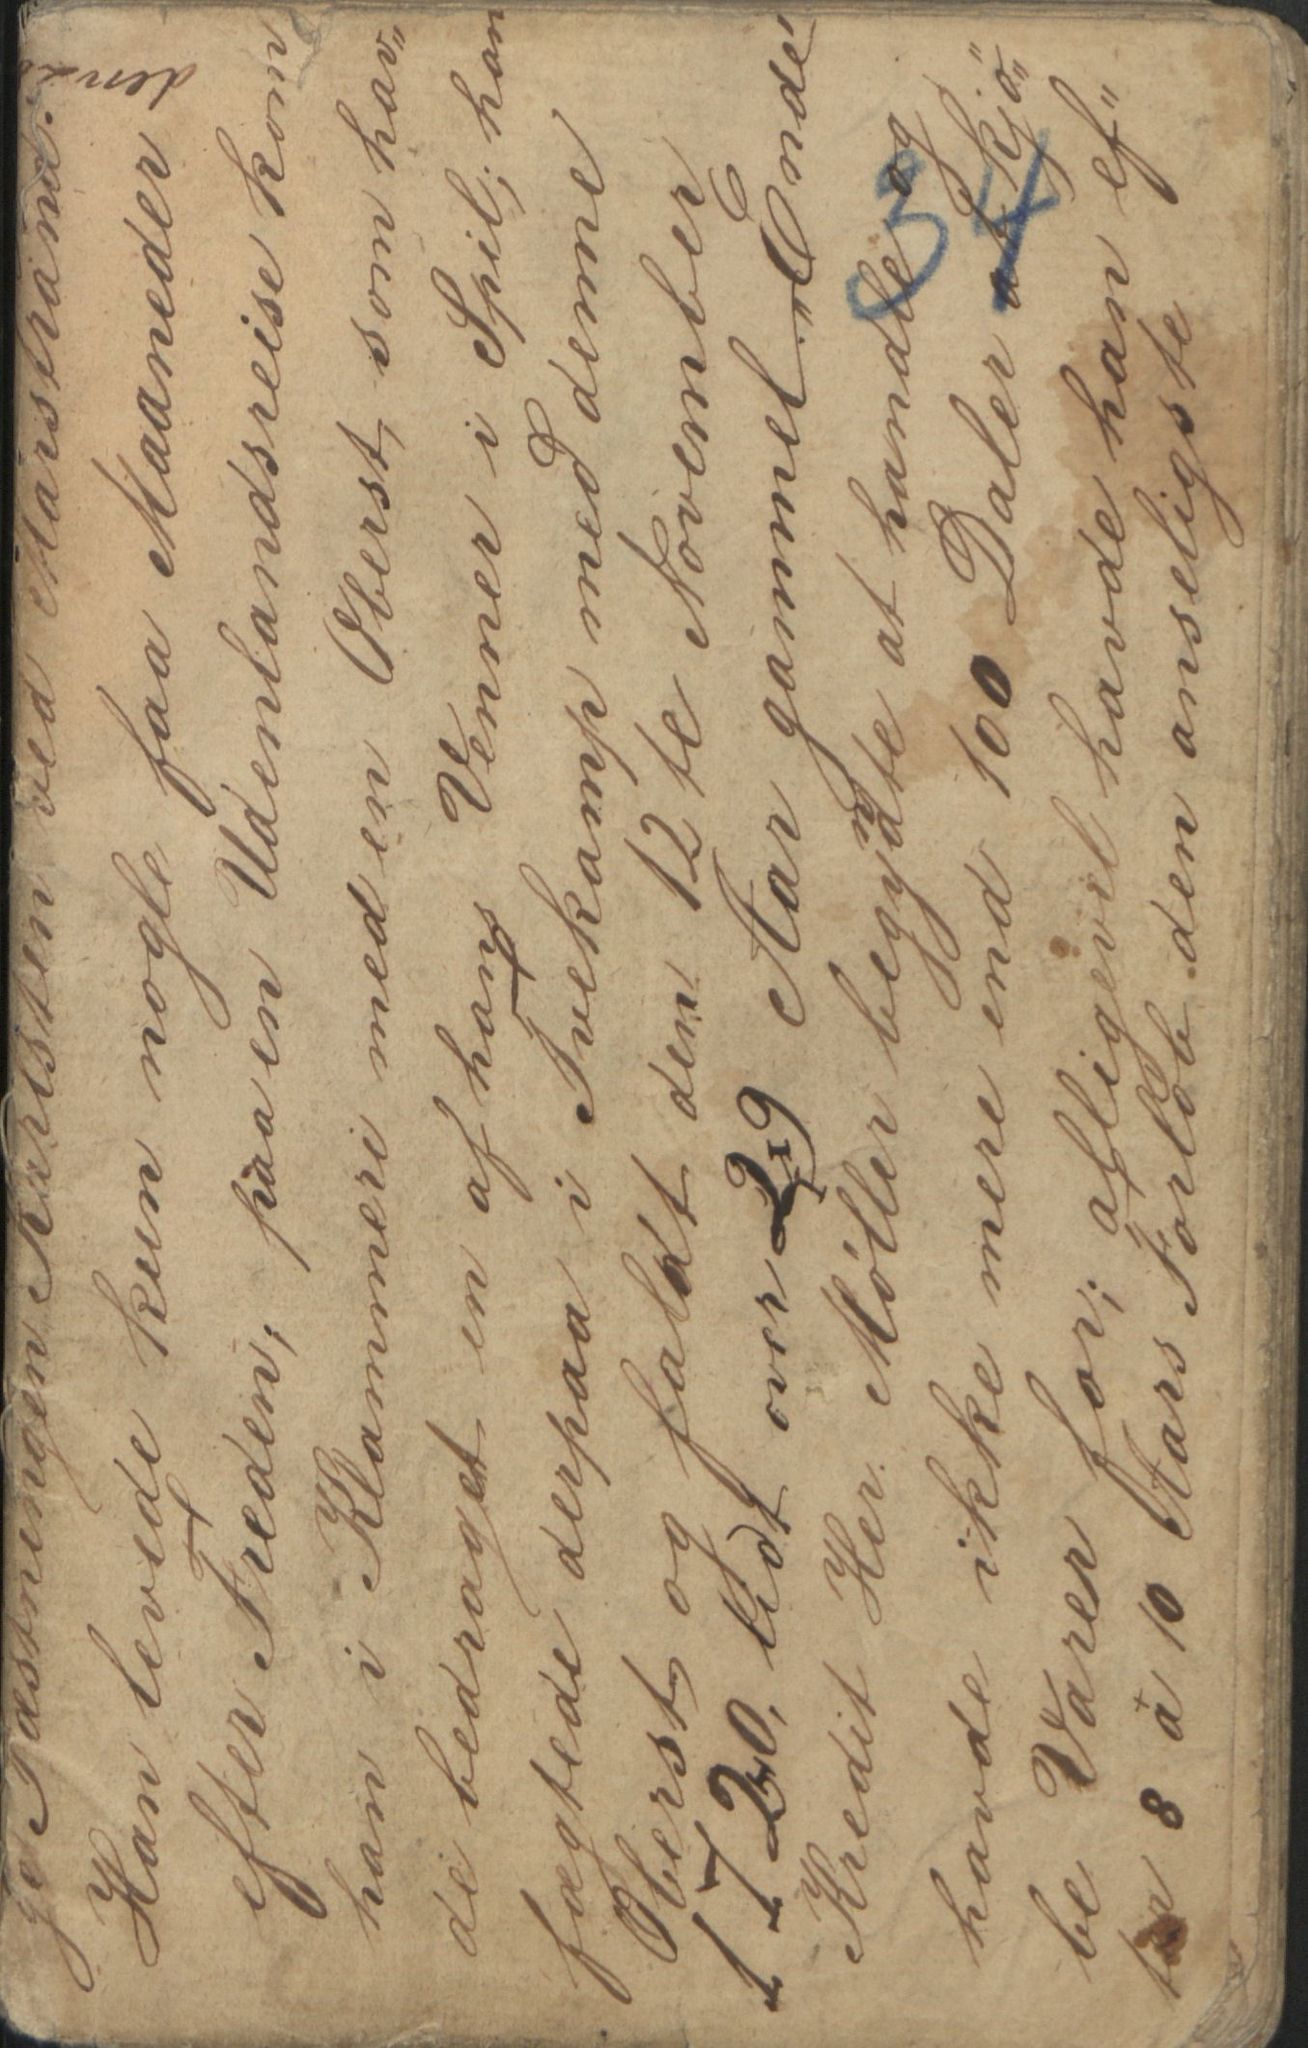 ge Fæstningen Karlsten ved Marstrand.
Han levede kun nogle faa Maaneder
efter Freden; paa en Udenlandsreise kom
han i Klammeri med en Oberst, som hav„
de bedraget en af hans Venner i Spil; han
fægtede derpaa i Tvekamp med denne
Oberst og faldt den 12te November
1720, lidt over 29 Aar gammel. Onde
Kredit Her. Möller begyndte at handle og
havde ikke mere end 100 Daler at kjö„
be Varer for; alligevel havde han ef„
ter 8 à 10 Aars Forlöb den anseligste
34